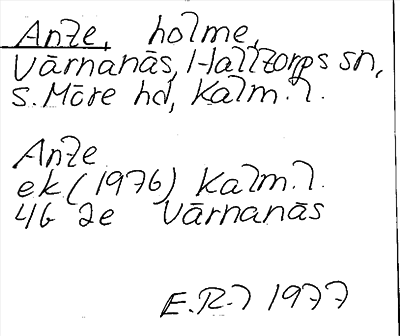 Ante, holme,
Värnanäs, Halltorps sn,
S. Möre hd, Kalm. l.
Ante
ek (1976) Kalm. l.
4G 2e Värnanäs
E.R-7 1977